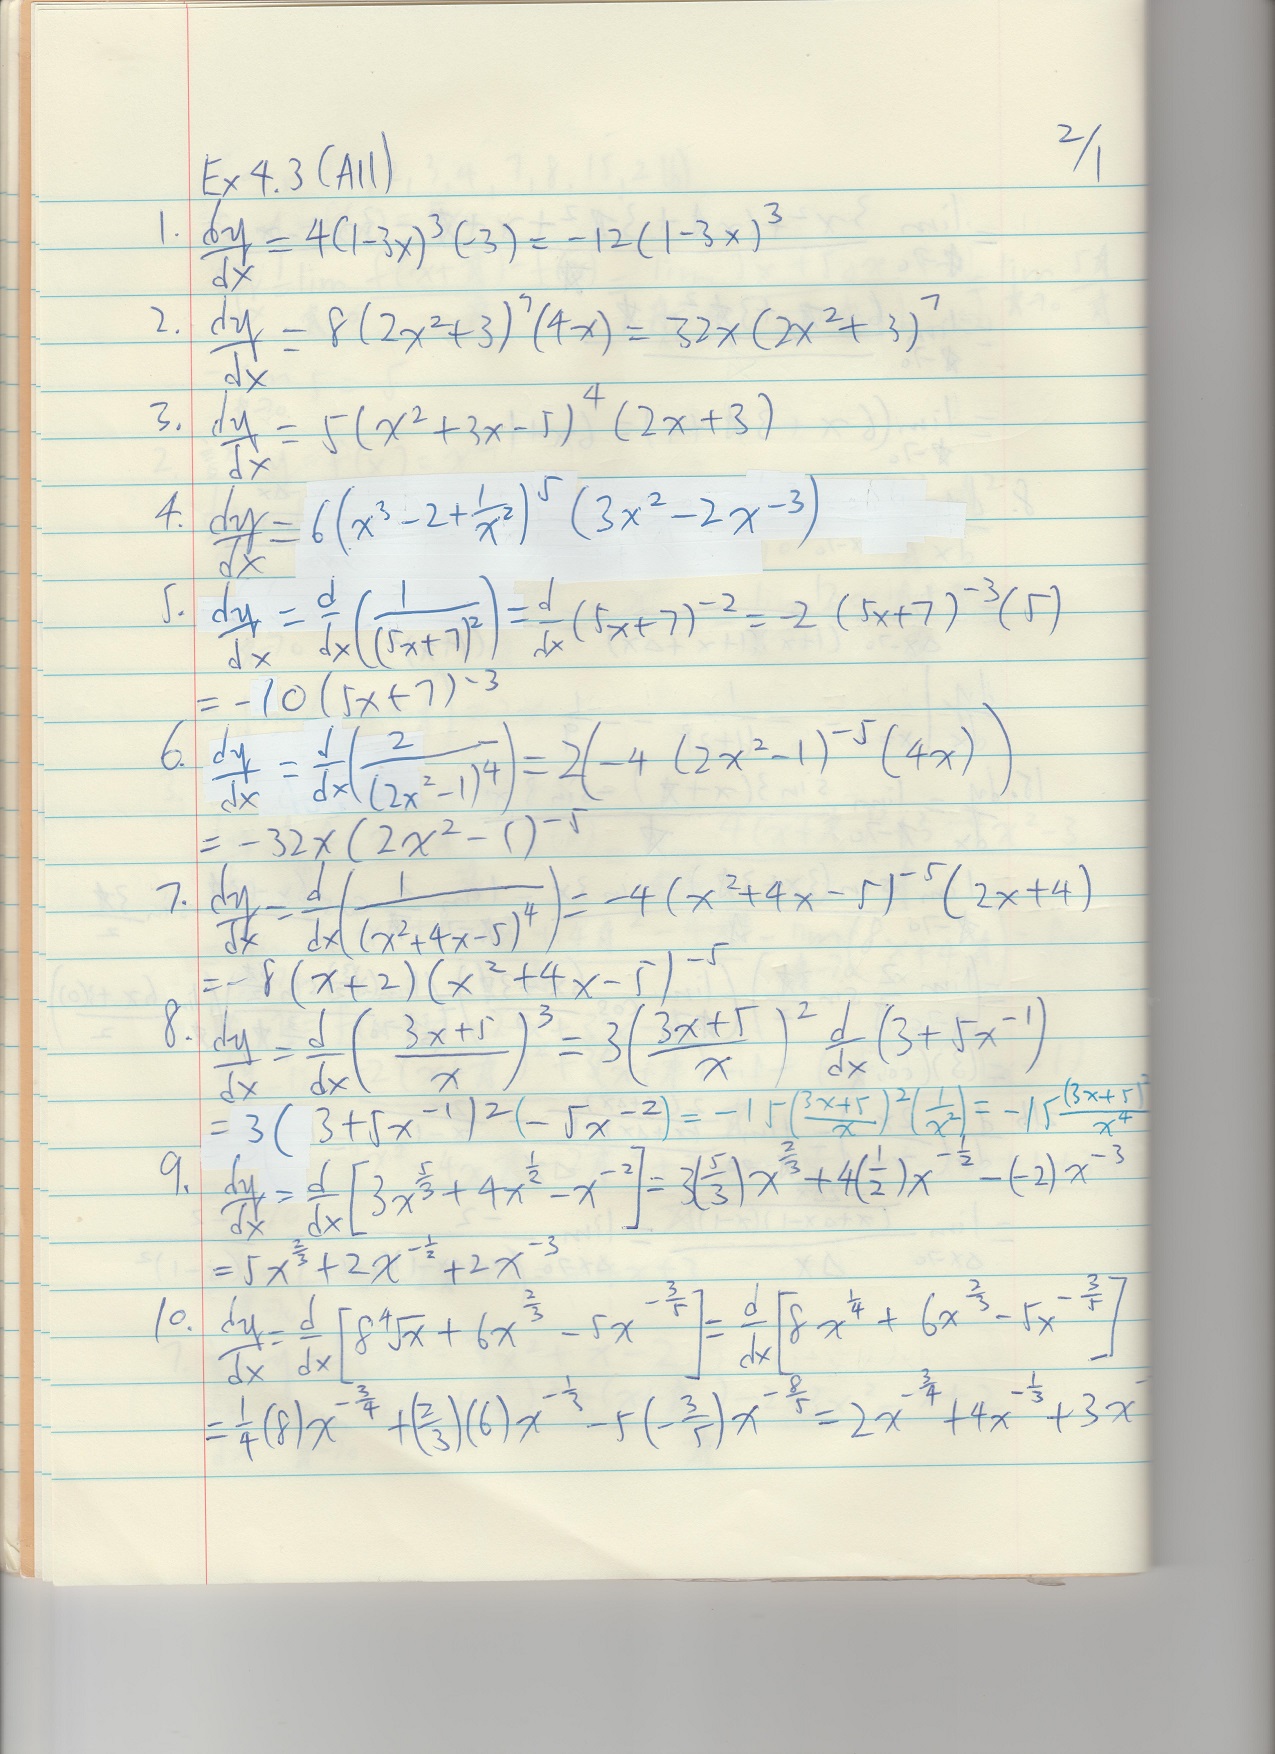 2/1
Ex 4.3 (All)
1. dy/dx = 4(1-3x)^3 (-3) = -12(1-3x)^3
2. dy/dx = 8(2x^2+3)^7 (4x) = 32x(2x^2+3)^7
3. dy/dx = 5(x^2+3x-5)^4 (2x+3)
4. dy/dx = 6(x^3-2+1/x^2)^5 (3x^2-2x^-3)
5. dy/dx = d/dx (1/(5x+7)^2) = d/dx (5x+7)^-2 = -2 (5x+7)^-3 (5)
= -10(5x+7)^-3
6. dy/dx = d/dx (2/(2x^2-1)^4) = 2(-4 (2x^2-1)^-5 (4x))
= -32x(2x^2-1)^-5
7. dy/dx = d/dx (1/(x^2+4x-5)^4) = -4(x^2+4x-5)^-5 (2x+4)
= -8(x+2)(x^2+4x-5)^-5
8. dy/dx = d/dx ((3x+5)/x)^3 = 3((3x+5)/x)^2 d/dx (3+5x^-1)
= 3(3+5x^-1)^2 (-5x^-2) = -15((3x+5)/x)^2 (1/x^2) = -15 (3x+5)/x^4
9. dy/dx = d/dx [3x^(5/3) + 4x^(1/2) - x^-2] = 3(5/3)x^(2/3) + 4(1/2)x^(-1/2) - (-2)x^-3
= 5x^(2/3) + 2x^(-1/2) + 2x^-3
10. dy/dx = d/dx [8 ⁴√x + 6x^(2/3) - 5x^(-3/5)] = d/dx [8x^(1/4) + 6x^(2/3) - 5x^(-3/5)]
= 1/4 (8)x^(-3/4) + (2/3)(6)x^(-1/3) - 5(-3/5)x^(-8/5) = 2x^(-3/4) + 4x^(-1/3) + 3x^-